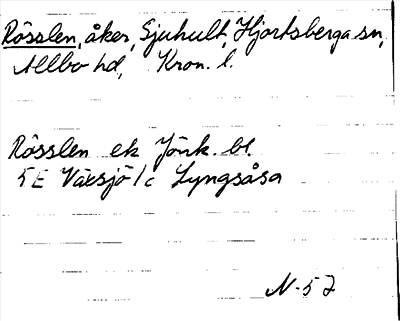 Rösslen, åker, Sjuhult, Hjortsberga sn,
Allbo hd, Kron. l.
Rösslen ek Jönk. bl.
5E Växsjö 1c Lyngsåsa
N-57